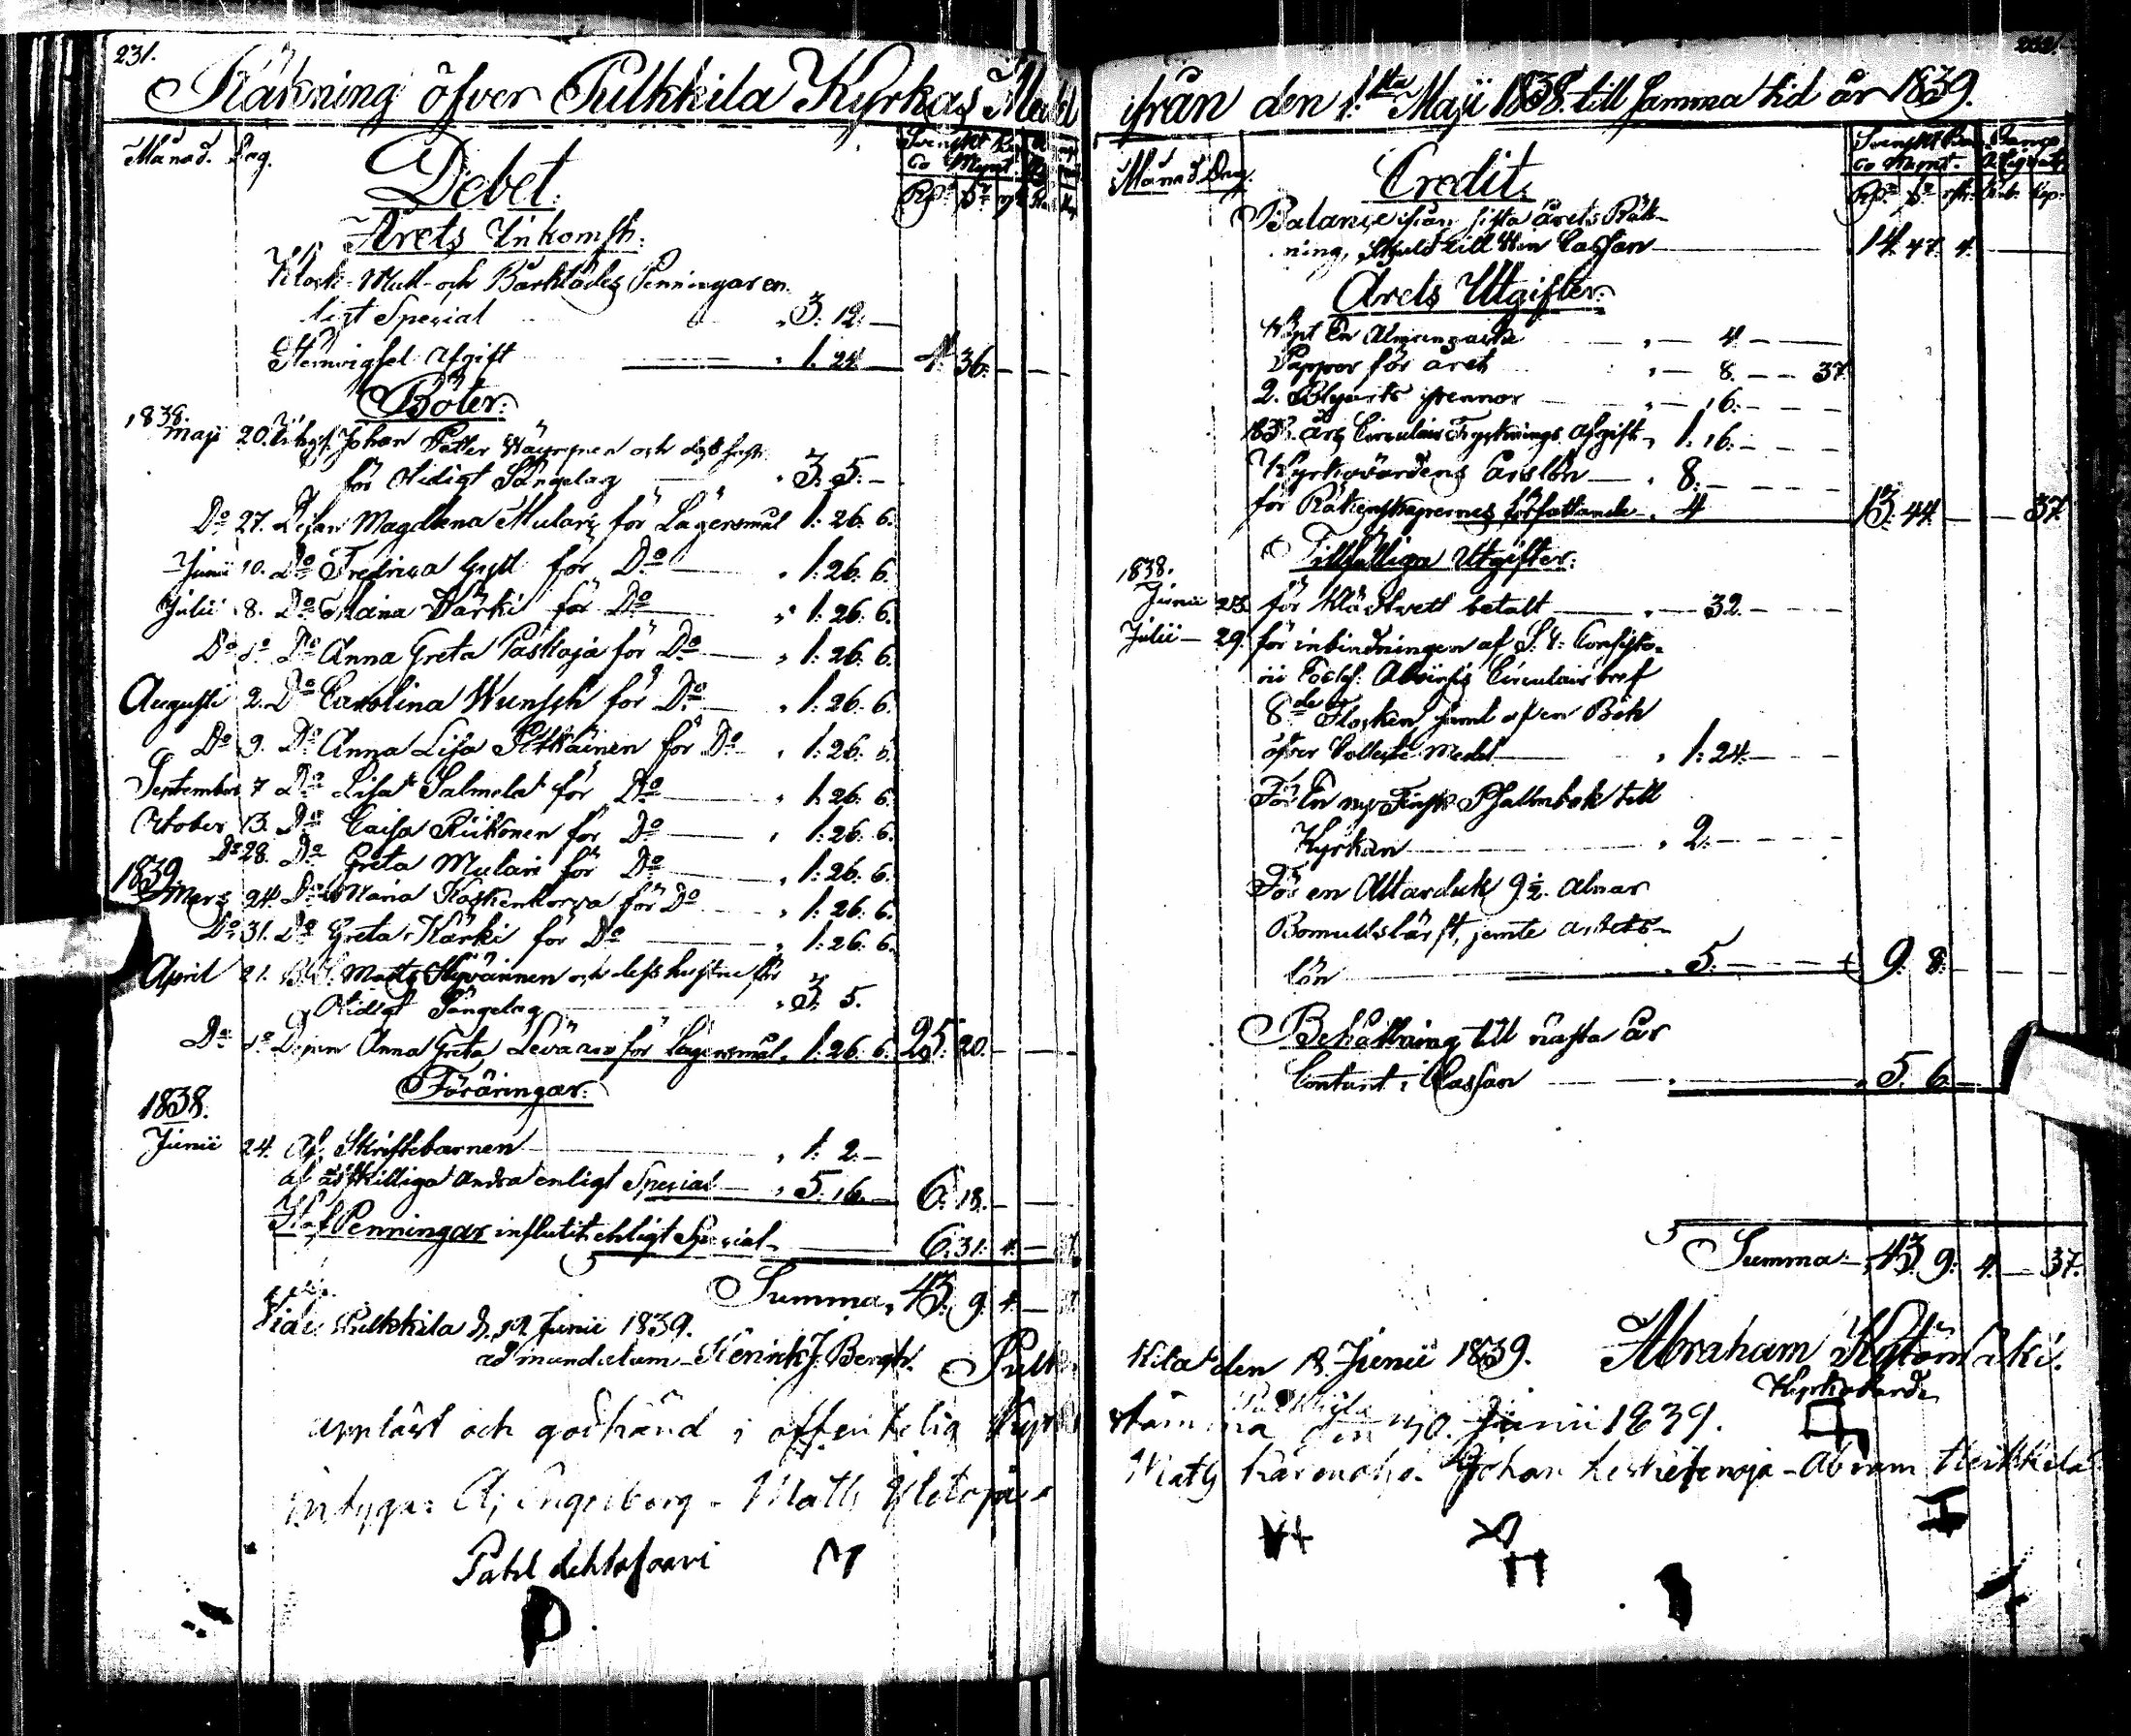 231.
Räkning öfver Pulkkila Kyrkas Medel
Månad. Dag.
Debet.
Svenskt Ban
co Mynt.
Rd. s. rst.
Årets Inkomst.
Klock- Mull- och Bårklädes Penningar en
ligt Special " 3. 12. —
Stenwigsel Afgift " 1. 24. — 4. 36. —
Böter.
1838.
Maji 20. Johan Petter Väyrynen och dess hustru
för Otidigt Sängelag " 3. 5. —
Do 27. Pigan Magdlena Mulari för Lägersmål 1. 26. 6.
Junii 10. Do Fredrica Gyll för Do " 1. 26. 6.
Julii 8. Do Maina Kärki för Do " 1. 26. 6.
Do do Do Anna Greta Pästäjä för Do " 1. 26. 6.
Augusti 2. Do Carolina Wunsch för Do " 1. 26. 6.
Do 9. Do Anna Lisa Pitkäinen för Do " 1. 26. 6.
September 7 Do Lisa Salmela för Do " 1. 26. 6.
October 13. Do Caisa Riikonen för Do " 1. 26. 6.
Do 28. Do Greta Mulari för Do " 1. 26. 6.
1839
Mars 24. Do Maria Koskenkorva för Do " 1. 26. 6.
Do 31. Do Greta Kärki för Do " 1. 26. 6.
April 21. Matts Hyvärinen och dess hustru för
Otidigt Sängelag " 3. 5.
Do do Pigan Anna Greta Levänen för Lägersmål " 1. 26. 6. 25. 20. —
Föräringar.
1838.
Junii 24. Af Skriftebarnen " 1. 2. —
af åtskilliga andra enligt Special " 5. 16. — 6. 18. —
Håf Penningar influtit enligt Special 6. 31. 4. —
Summa " 43. 9. 4. —
Pulkkila d. 12 Junii 1839.
ad mandatum Henrik J. Bergh.
Pulk
Uppläst och godkänd i offentelig Kyrko
intyga: A: Engelberg - Matts Yletoja -
Pahl Lehtosaari
ifrån den 1:sta Maji 1838. till samma tid år 1839.
Månad Dag.
Credit.
Svenskt Ban
co Mynt.
Banco
Assignat.
Rd. s. rst. Rub. Kop.
Balance från sista årets Räk-
ning, Skuld till Cassan 14. 47. 4. —
Årets Utgifter.
Köpt En Almanacka " — 4. —
Papper för året " — 8. — — 37.
2. Blyerts pennor " — 16. —
1838. års Circulair Trycknings afgift " 1. 16. —
Kyrkovärdens Årslön " 8. —
för Räkenskapernes författande " 4 13. 44. — — 37
Tillfälliga Utgifter.
1838.
Junii 23. för Klädtvett betalt " — 32. —
Julii 29. för inbindningen af S. T. Consisto-
rii Eccles. Circulair bref
8de Flocken samt af en Bok
öfver Collecte Medel " 1. 24. —
För En ny Finsk Psalmbok till
Kyrkan " 2. —
För en Altarduk 9½ Alnar
Bomullslärft, jemte arbets-
lön " 5. — 9. 8. —
Behållning till nästa år
Contant i Cassan " 5. 6. —
Summa " 43. 9. 4. — 37.
kila den 12. Junii 1839. Abraham
Kyrkovärd
Pulkkila
stämma den 30. Junii 1839.
Matts Johan Abram Heikkilä